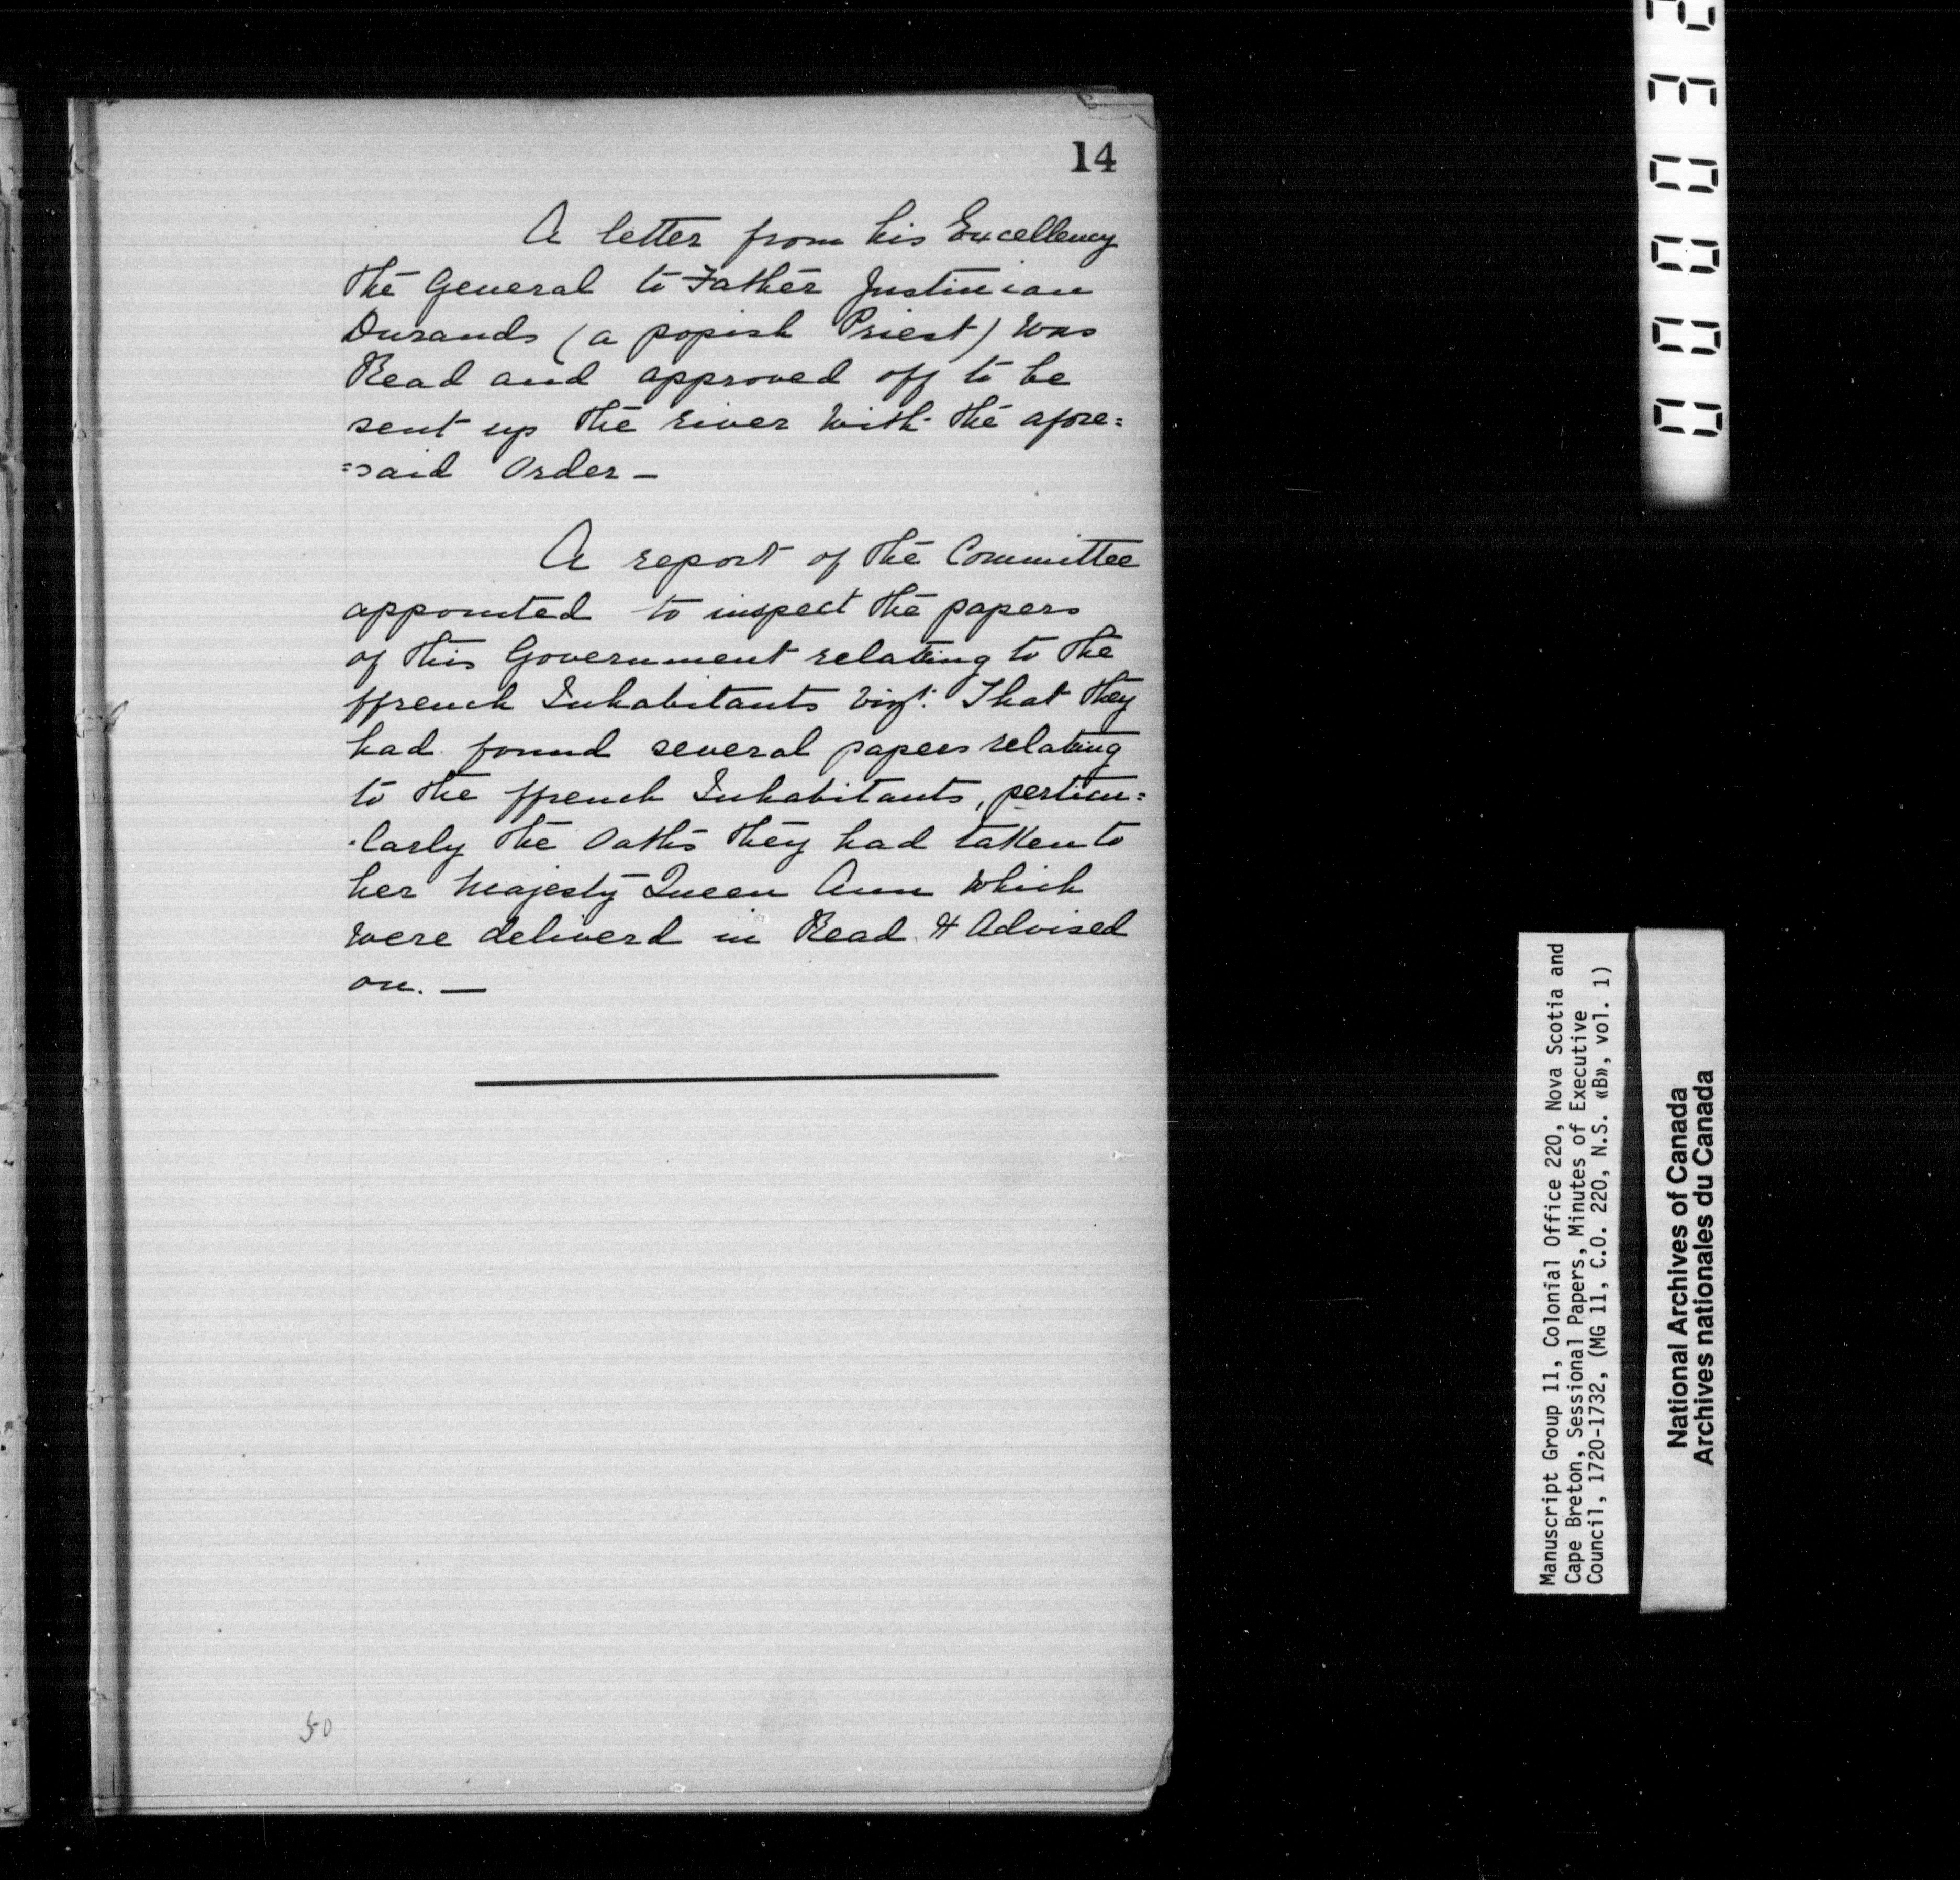 14
A letter from his Excellency
the General to Father Justinian
Durands (a popish Priest) was
Read and approved off to be
sent up the river with the afore=
=said Order —
A report of the Committee
appointed to inspect the papers
of this Government relating to the
ffrench Inhabitants vizt. That they
had found several papers relating
to the ffrench Inhabitants, perticu=
larly the Oaths they had taken to
her Majesty Queen Ann which
were deliverd in Read & Advised
on. —
50
Manuscript Group 11, Colonial Office 220, Nova Scotia and
Cape Breton, Sessional Papers, Minutes of Executive
Council, 1720-1732, (MG 11, C.O. 220, N.S. «B», vol. 1)
National Archives of Canada
Archives nationales du Canada